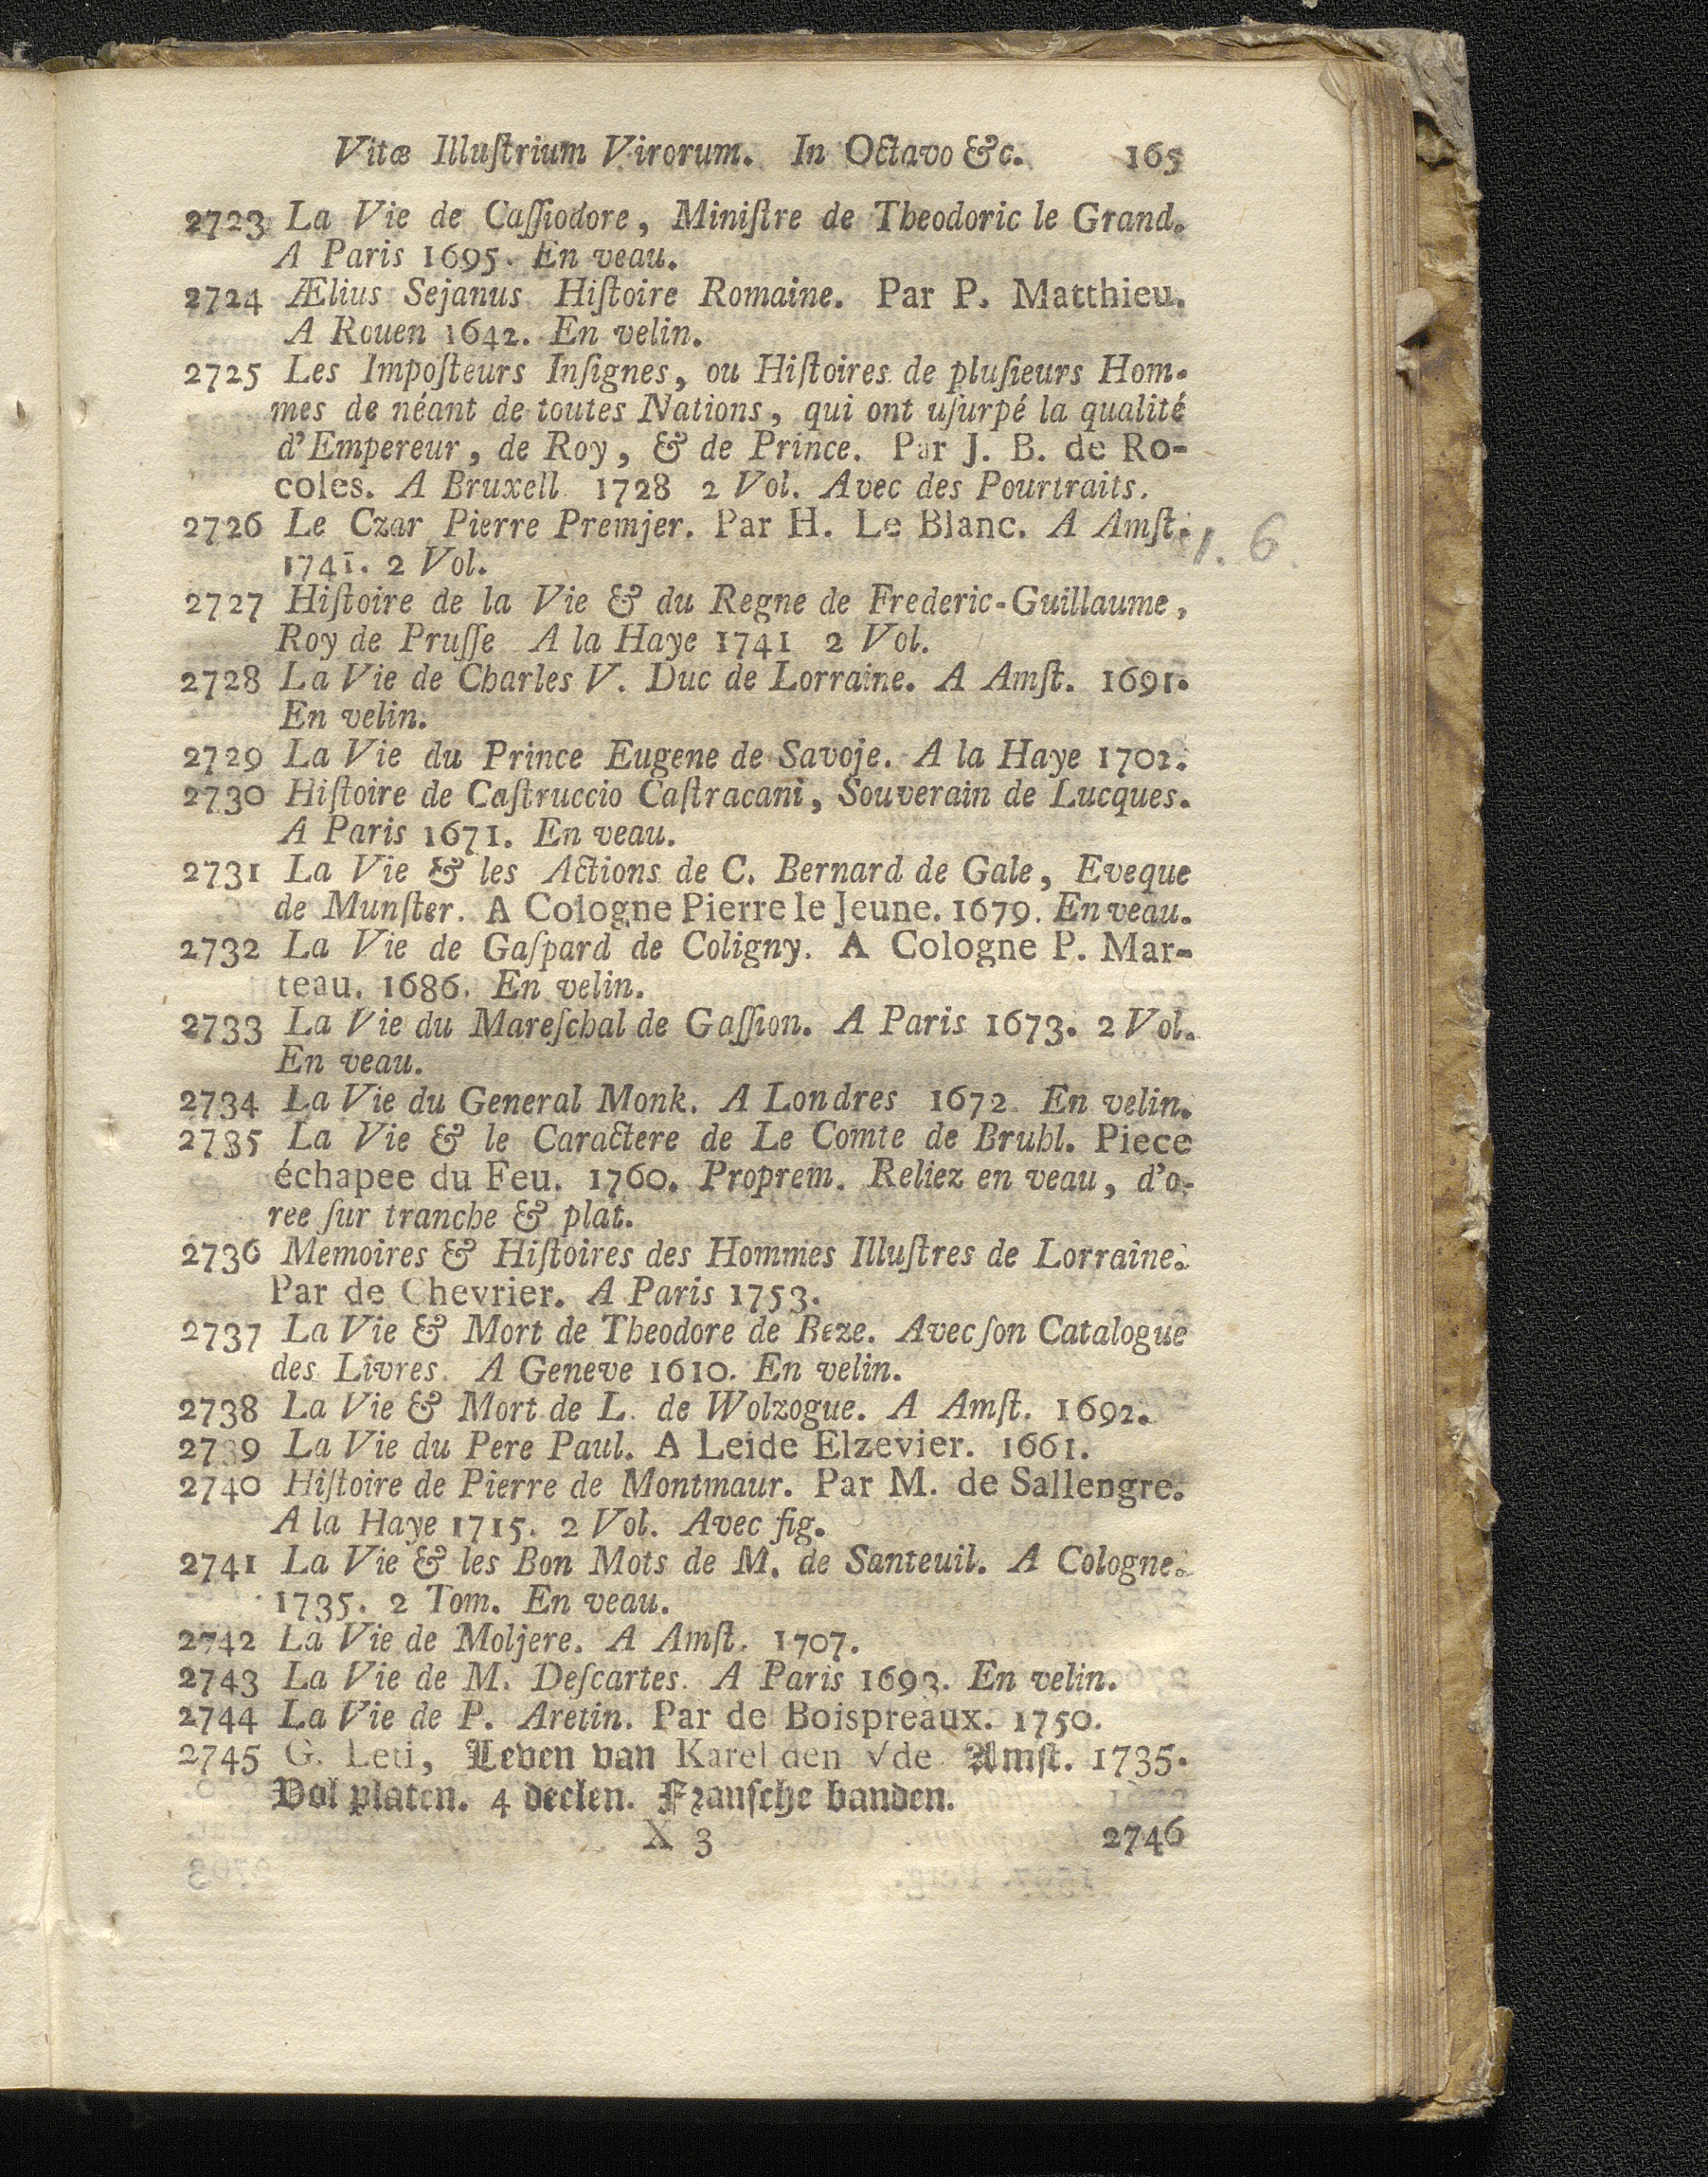 Vitæ Illuſtrium Virorum. In Octavo &c. 165
2723 La Vie de Caſſiodore, Miniſtre de Theodoric le Grand.
A Paris 1695. En veau.
2724 Ælius Sejanus Hiſtoire Romaine. Par P. Matthieu.
A Rouen 1642. En velin.
2725 Les Impoſteurs Inſignes, ou Hiſtoires de pluſieurs Hom-
mes de néant de toutes Nations, qui ont uſurpé la qualité
d'Empereur, de Roy, & de Prince. Par J. B. de Ro-
coles. A Bruxell 1728 2 Vol. Avec des Pourtraits.
2726 Le Czar Pierre Premjer. Par H. Le Blanc. A Amſt. 1. 6
1741. 2 Vol.
2727 Hiſtoire de la Vie & du Regne de Frederic-Guillaume,
Roy de Pruſſe A la Haye 1741 2 Vol.
2728 La Vie de Charles V. Duc de Lorraine. A Amſt. 1691.
En velin.
2729 La Vie du Prince Eugene de Savoje. A la Haye 1702.
2730 Hiſtoire de Caſtruccio Caſtracani, Souverain de Lucques.
A Paris 1671. En veau.
2731 La Vie & les Actions de C. Bernard de Gale, Eveque
de Munſter. A Cologne Pierre le Jeune. 1679. En veau.
2732 La Vie de Gaſpard de Coligny. A Cologne P. Mar-
teau. 1686. En velin.
2733 La Vie du Mareſchal de Gaſſion. A Paris 1673. 2 Vol.
En veau.
2734 La Vie du General Monk. A Londres 1672. En velin.
2735 La Vie & le Caractere de Le Comte de Bruhl. Piece
échapee du Feu. 1760. Proprem. Reliez en veau, d'o-
ree ſur tranche & plat.
2736 Memoires & Hiſtoires des Hommes Illuſtres de Lorraine.
Par de Chevrier. A Paris 1753.
2737 La Vie & Mort de Theodore de Beze. Avec ſon Catalogue
des Livres. A Geneve 1610. En velin.
2738 La Vie & Mort de L. de Wolzogue. A Amſt. 1692.
2739 La Vie du Pere Paul. A Leide Elzevier. 1661.
2740 Hiſtoire de Pierre de Montmaur. Par M. de Sallengre.
A la Haye 1715. 2 Vol. Avec fig.
2741 La Vie & les Bon Mots de M. de Santeuil. A Cologne.
1735. 2 Tom. En veau.
2742 La Vie de Moljere. A Amſt. 1707.
2743 La Vie de M. Deſcartes. A Paris 1693. En velin.
2744 La Vie de P. Aretin. Par de Boispreaux. 1750.
2745 G. Leti, Leven van Karel den Vde Amſt. 1735.
Vol platen. 4 deelen. Franſche banden.
X 3 2746